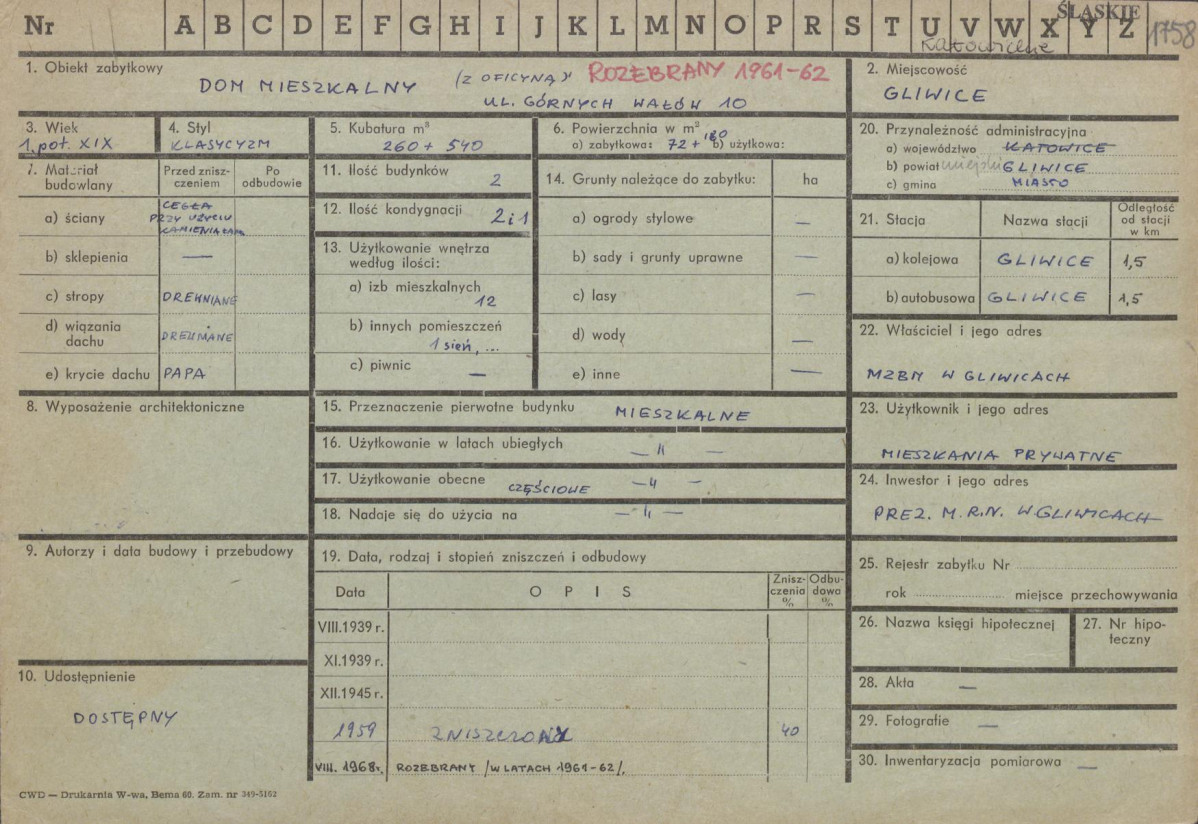 Nr A B C D E F G H I J K L M N O P R S T U V W X Y Z
ŚLĄSKIE
katowickie
1758
1. Obiekt zabytkowy
DOM MIESZKALNY (Z OFICYNĄ)
ROZEBRANY 1961-62
UL. GÓRNYCH WAŁÓW 10
2. Miejscowość
GLIWICE
3. Wiek
1. poł. XIX
4. Styl
KLASYCYZM
5. Kubatura m³
260 + 540
6. Powierzchnia w m²
a) zabytkowa: 72 + 180 b) użytkowa:
7. Materiał budowlany
Przed znisz-
czeniem
Po
odbudowie
a) ściany CEGŁA
PRZY UŻYCIU
KAMIENIA ŁAM
b) sklepienia —
c) stropy DREWNIANE
d) wiązania
dachu DREWNIANE
e) krycie dachu PAPA
8. Wyposażenie architektoniczne
9. Autorzy i data budowy i przebudowy
10. Udostępnienie
DOSTĘPNY
11. Ilość budynków 2
12. Ilość kondygnacji 2 i 1
13. Użytkowanie wnętrza
według ilości:
a) izb mieszkalnych
12
b) innych pomieszczeń
1 sień, ...
c) piwnic —
14. Grunty należące do zabytku: ha
a) ogrody stylowe —
b) sady i grunty uprawne —
c) lasy —
d) wody —
e) inne —
15. Przeznaczenie pierwotne budynku MIESZKALNE
16. Użytkowanie w latach ubiegłych — " —
17. Użytkowanie obecne CZĘŚCIOWE — " —
18. Nadaje się do użycia na — " —
19. Data, rodzaj i stopień zniszczeń i odbudowy
Data
OPIS
Znisz-
czenia
%
Odbu-
dowa
%
VIII.1939 r.
XI.1939 r.
XII.1945 r.
1959 ZNISZCZONY 40
VIII. 1968r. ROZEBRANY /W LATACH 1961-62/.
20. Przynależność administracyjna
a) województwo KATOWICE
b) powiat miejski GLIWICE
c) gmina MIASTO
21. Stacja
Nazwa stacji
Odległość
od stacji
w km
a) kolejowa GLIWICE 1,5
b) autobusowa GLIWICE 1,5
22. Właściciel i jego adres
MZBM W GLIWICACH
23. Użytkownik i jego adres
MIESZKANIA PRYWATNE
24. Inwestor i jego adres
PREZ. M.R.N. W GLIWICACH
25. Rejestr zabytku Nr
rok miejsce przechowywania
26. Nazwa księgi hipotecznej
27. Nr hipo-
teczny
28. Akta —
29. Fotografie —
30. Inwentaryzacja pomiarowa —
CWD — Drukarnia W-wa, Bema 60. Zam. nr 349-5162